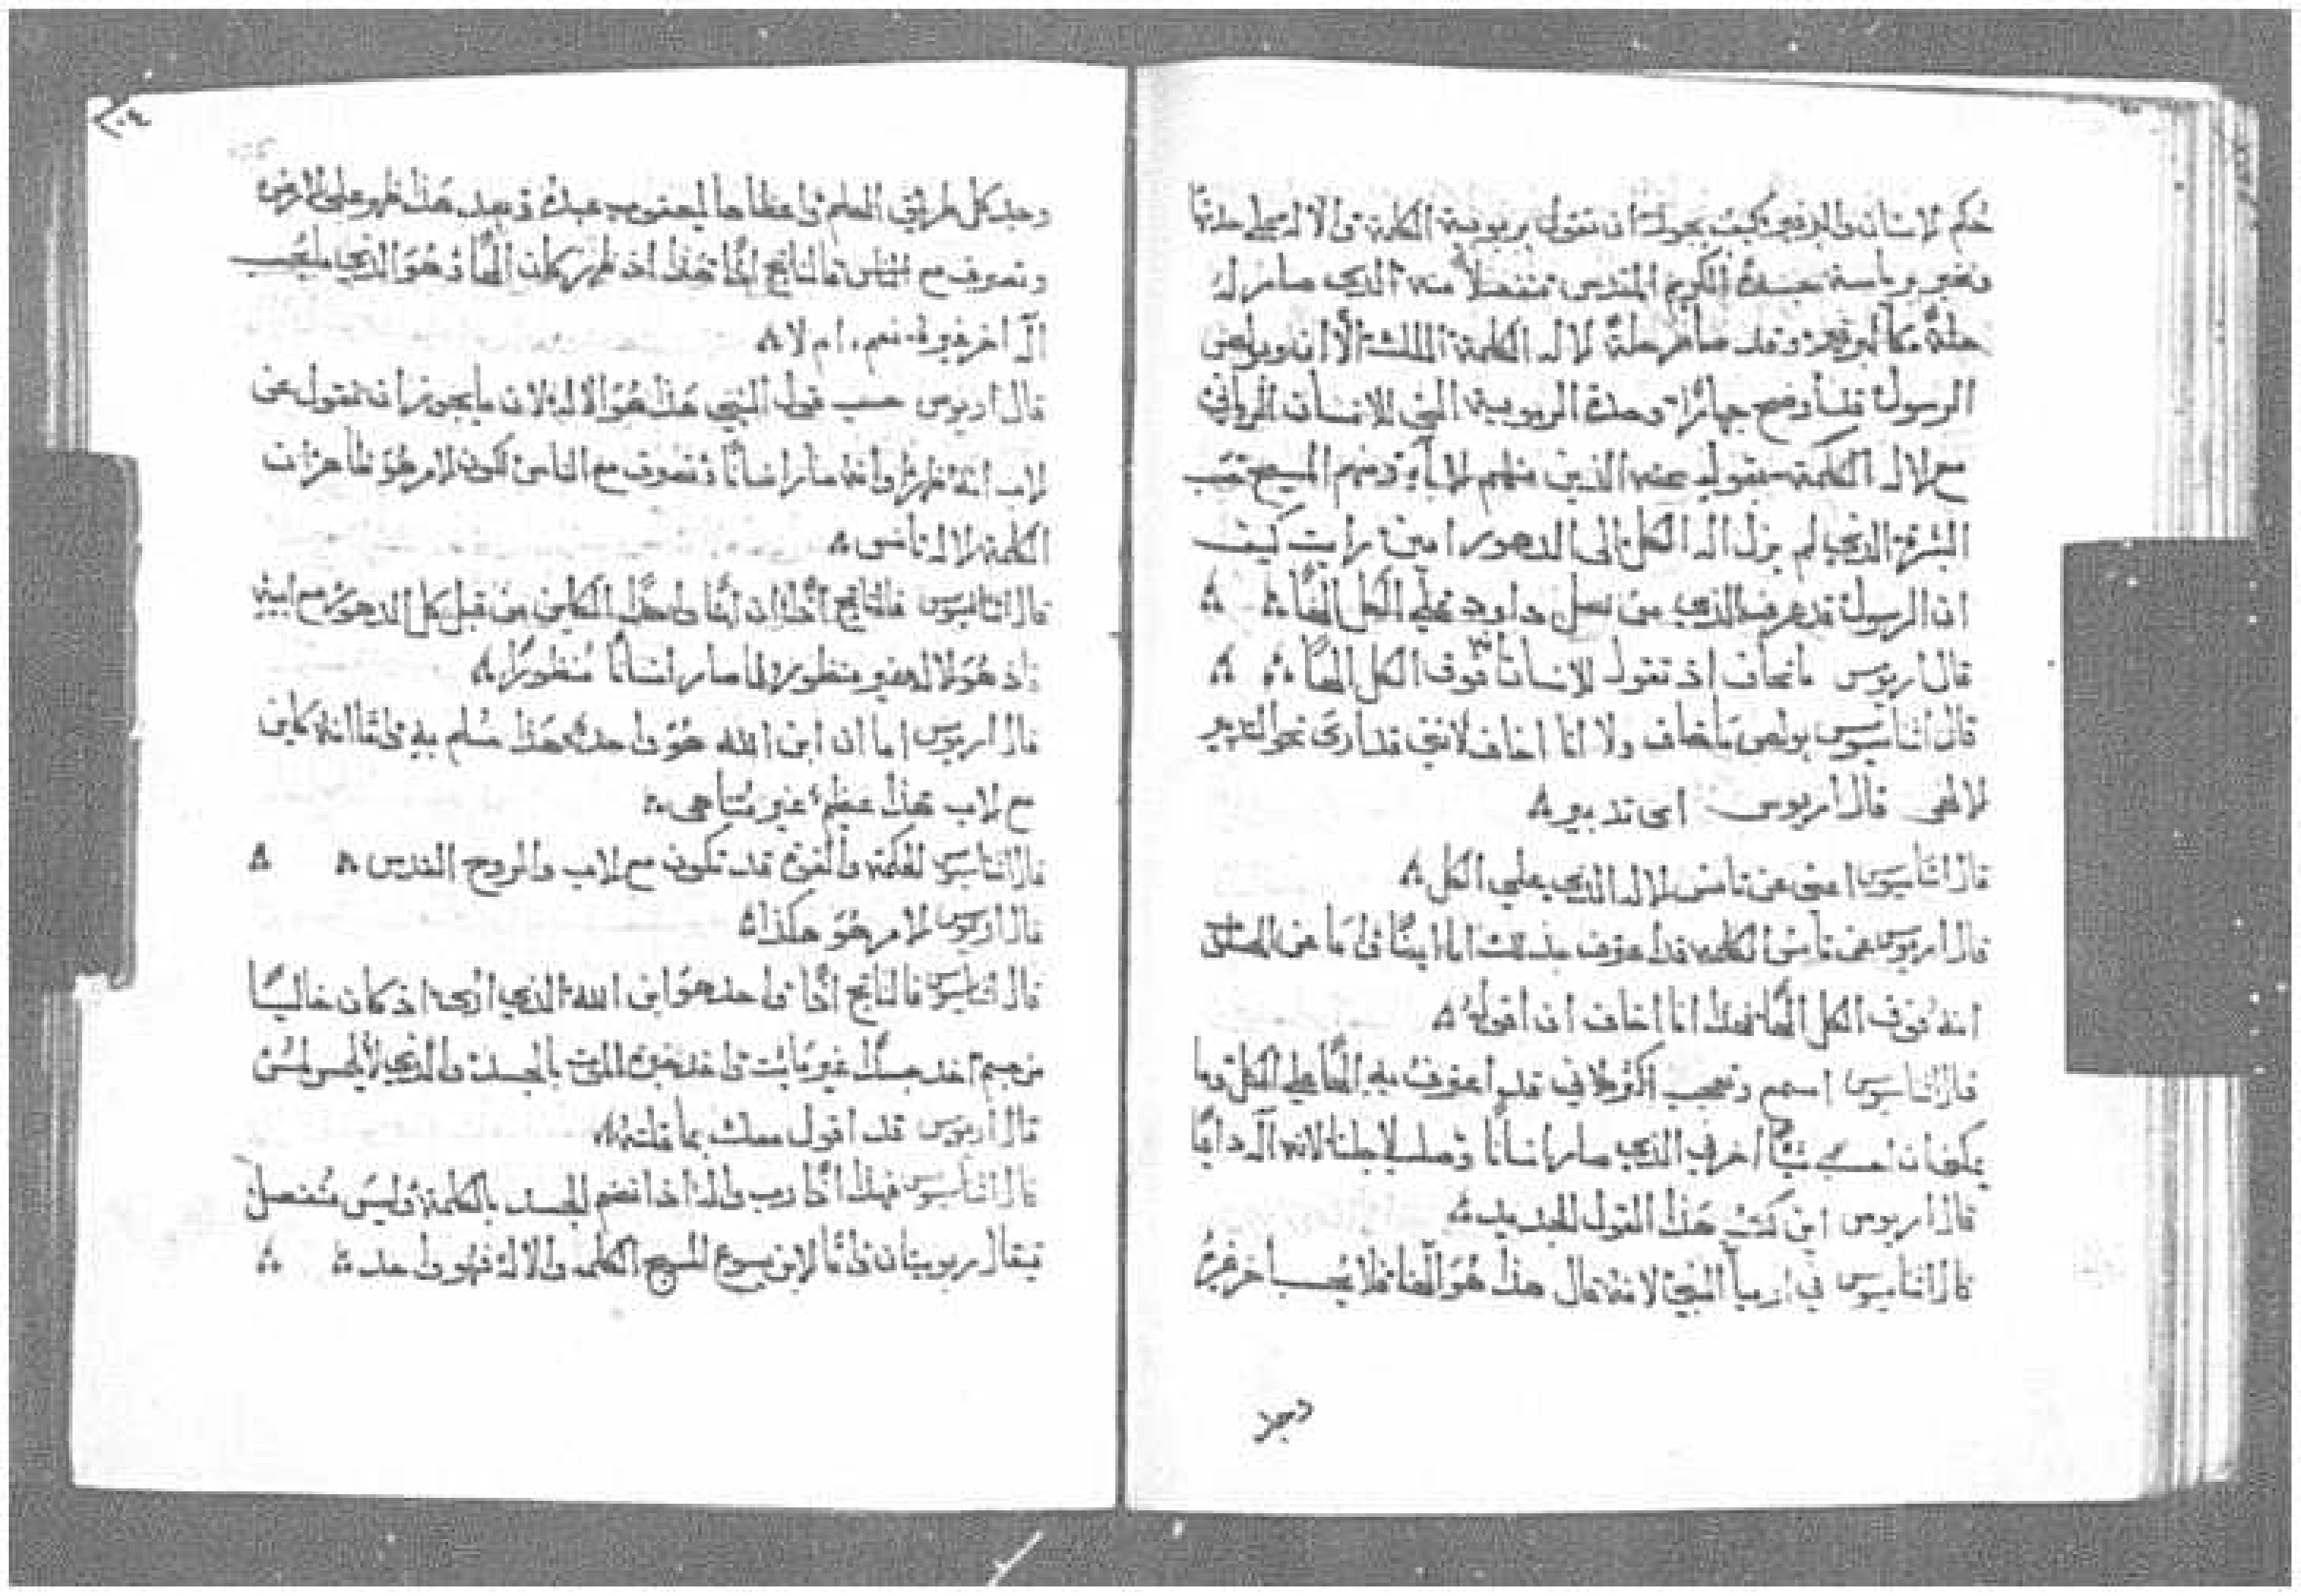 حكم الانسان والبرفير كيف يجوز لك ان تقول بربوبية الكلمة والاله
جسده الكريم المقدس منفصلاً منه الذي صار له
حلةً كالبرفير وقد صار حلةً للاله الكلمة الملك الا ان بولص
الرسول قد اوضح جهارًا وحدة الربوبية التي للانسان الرباني
مع الاله الكلمة بقوله عنه الذين منهم الاباء ومنهم المسيح حسب
البشرة الذي لم يزل اله الكل الى الدهور امين رايت كيف
ان الرسول قد عرف الذي من نسل داود على الكل الهًا ۞
قال اريوس ما تخاف اذ تقول للانسان انه فوق الكل الهًا ۞
قال اثناسيوس بولص ما خاف ولا انا اخاف لانني قد ارى نحو التدبير
الالهي قال اريوس اى تدبير
قال اثناسيوس اعنى عن تانس الاله الذي على الكل
قال اريوس عن تانس الكلمة قد اعترف بذلك انا ايضًا واما عن
انه فوق الكل الهًا فهذا انا اخاف ان اقوله
قال اثناسيوس اسمع وتعجب اكثر لاني قد اعترف به الهًا على الكل وما
يمكن ان احسب شيًا اخر في الذي صار انسانًا وصلب لاجلنا لانه اله دايمًا
قال اريوس اين كتب هذا القول الجديد
قال اثناسيوس في ارميا النبي لانه قال هذا هو الهنا فلا يحسب اخر غيره
وجد
٢٠٤
وجد كل طريق العلم واعطاها ليعقوب عبده وبعد هذا ظهر على الارض
وتصرف مع الناس فالناتج اذًا هذا اذ ظهر كان الهًا وهو الذي ما يحسب
اله اخر غيره نعم ام لا
قال اريوس حسب قول النبي هذا هو الاله الان ما يجوز ان نقول عن
الاب انه ظهر وانه صار انسانًا وتصرف مع الناس لكون الامر هو ظاهر ان
الكلمة الاله تانس
قال اثناسيوس فالناتج اذًا ان الهًا واحدًا الكاين من قبل كل الدهور مع ابيه
اذ هو الاله غير منظور ولما صار انسانًا منظورًا
قال اريوس اما ان ابن الله هو واحد هذا مسلم به واما انه كاين
مع الاب هذا عظيم غير متناهى
قال اثناسيوس الحكمة والقوة قد تكون مع الاب والروح القدس
قال اريوس الامر هو هكذا
قال اثناسيوس فالناتج اذًا واحد هو ابن الله الذي ازلى اذ كان خاليًا
من جسم اخذ جسدًا غير مايت واخذ خبرة الموت بالجسد والذي لا يُحس لمس
قال اريوس قد اقول معك بما قلته
قال اثناسيوس فهذا اذًا رب واله اذا انضم الجسد بالكلمة وليس منفصل
فيقال ربوبيتان واما الابن يسوع المسيح الكلمة والاله فهو واحد ۞